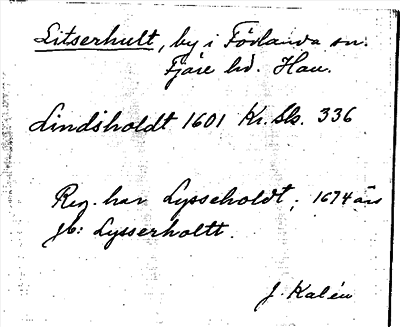 Litserhult, by i Förlanda sn.
Fjäre hd. Hall.
Lindsholdt 1601 Kr. Sk. 336
Reg. har Lysseholdt; 1674 års
Jb: Lysserholtt.
J. Kalén